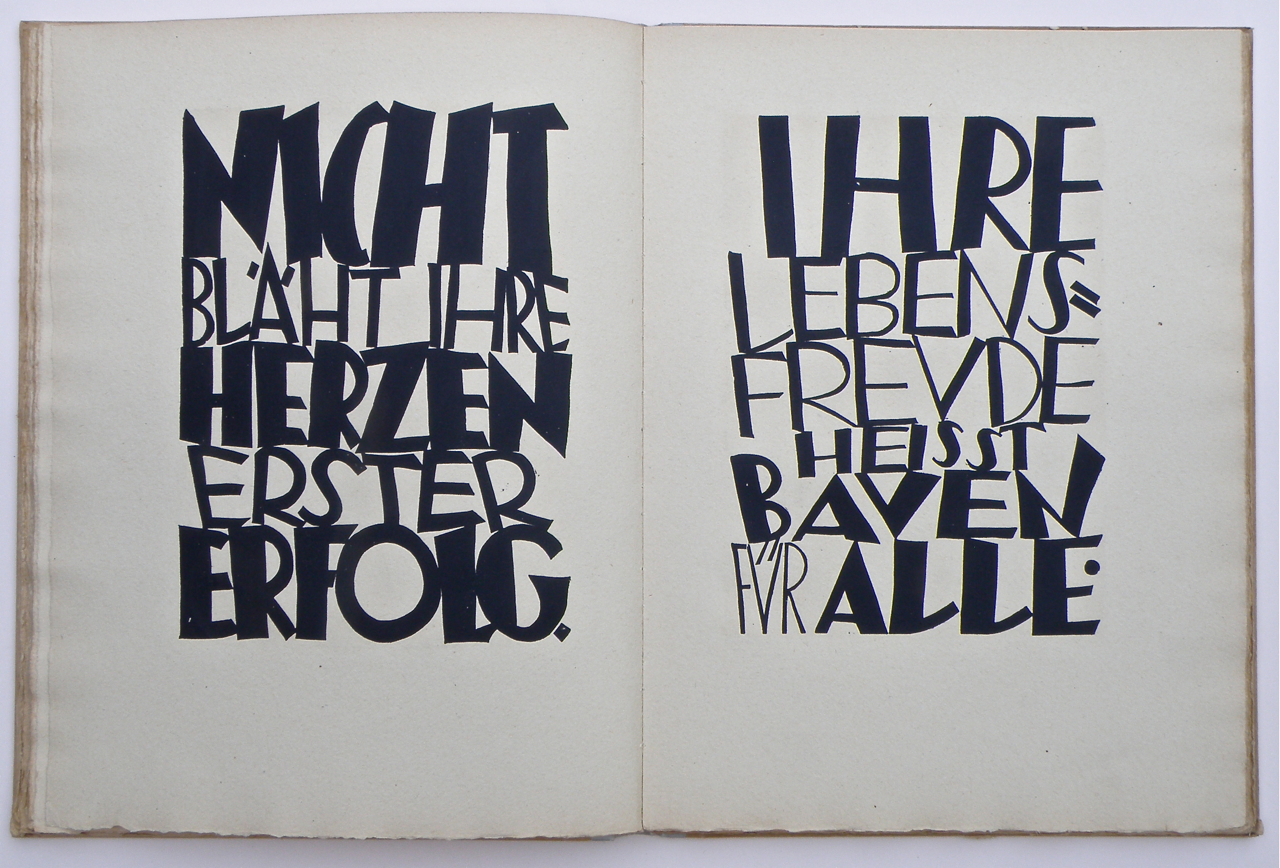 NICHT
BLÄHT IHRE
HERZEN
ERSTER
ERFOLG.
IHRE
LEBENS=
FREVDE
HEISST
BAVEN
FÜR ALLE!